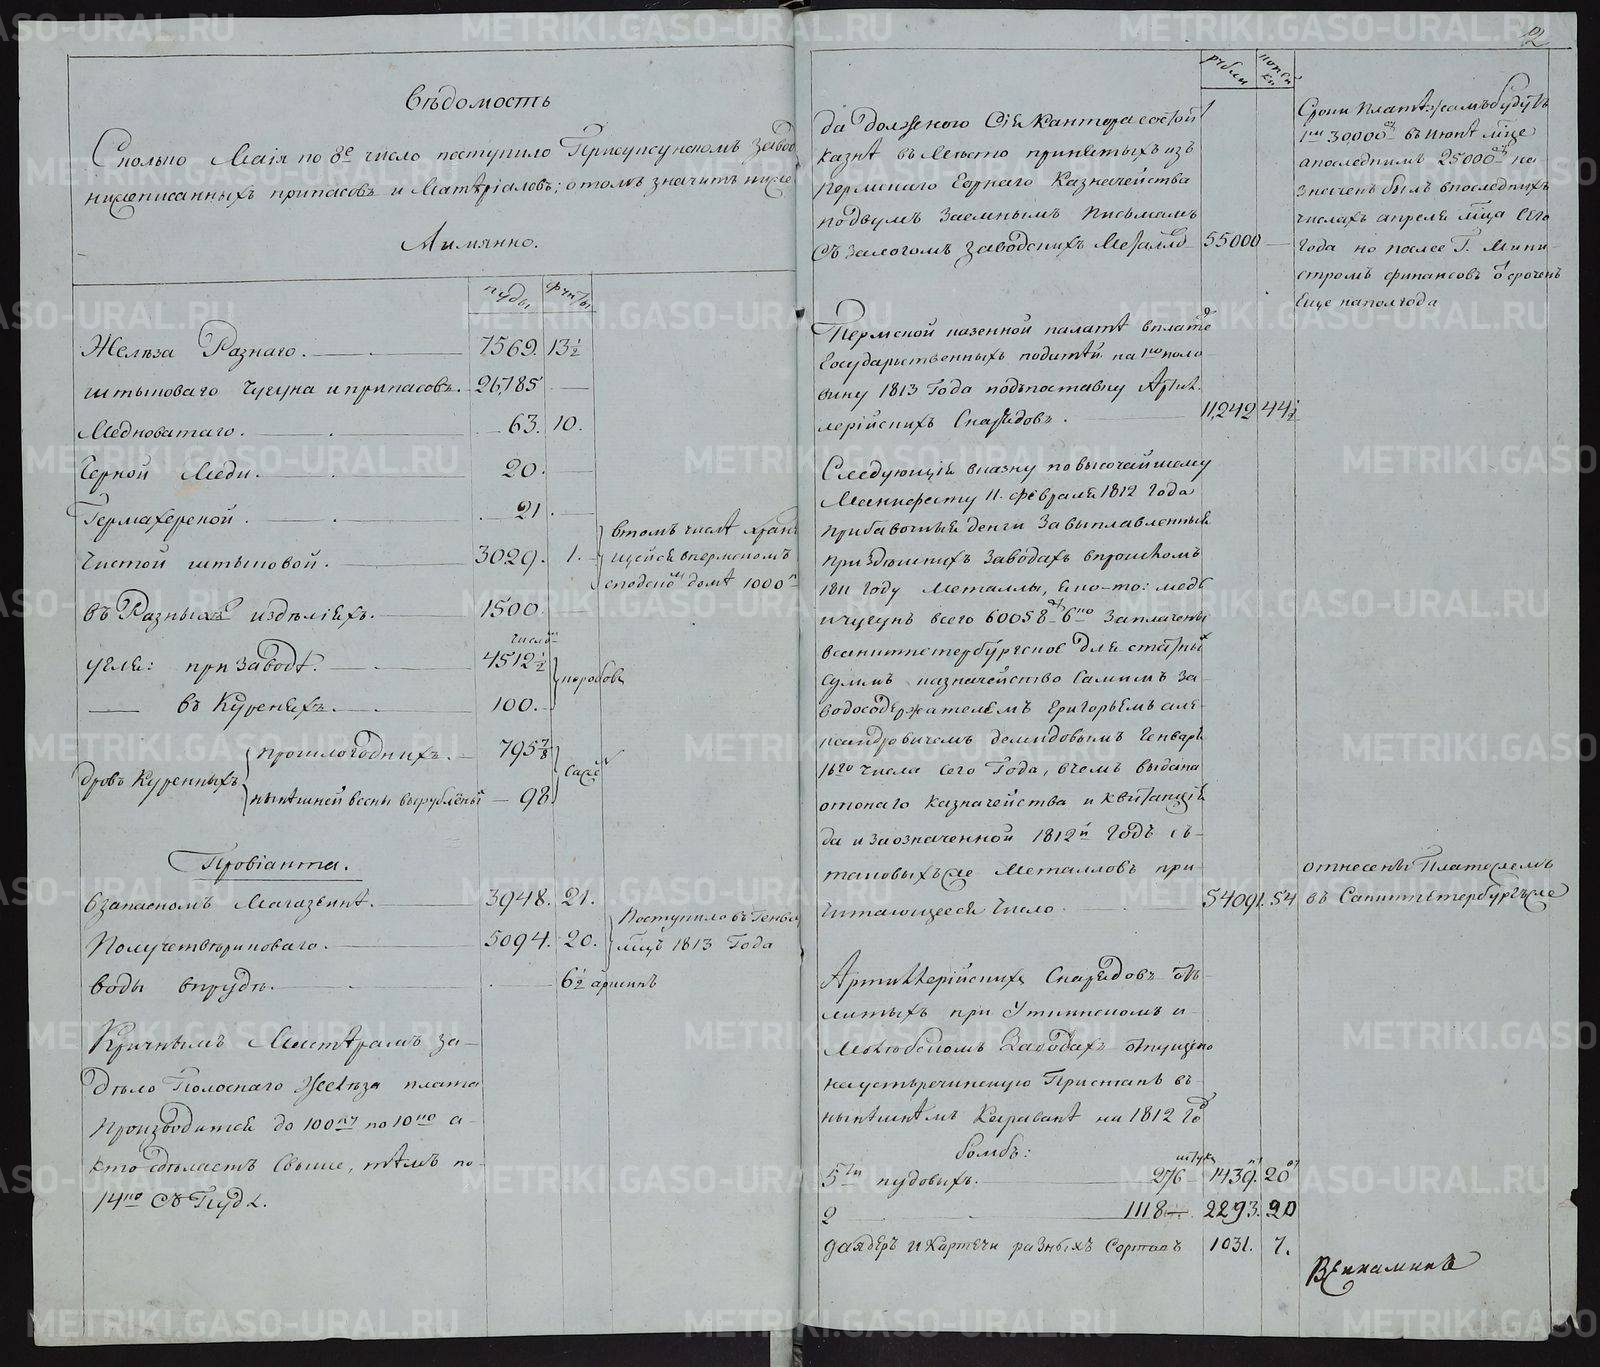 Вѣдомость
Сколько Маія по 8е число поступило Присуксунскомъ Завод
нижеписанныхъ припасовъ и Матѣріаловъ; отомъ значитъ ниже
Аимянно.
пуды фунты
Желѣза Разнаго. 7569. 13½
штыковаго Чугуна и припасовъ. 26,185
Медноватаго. 63. 10.
Черной Меди. 20.
Гермахерской. 21
Чистой штыковой. 3029. 1.
втомъ числѣ храня
щейся впермскомъ
господскомъ домѣ 1000 п
въ Разныхъ издѣліяхъ. 1500.
число
угля: при Заводѣ. 4512½
въ Куреняхъ. 100.
коробовъ
дровъ Куренныхъ
прошлогоднихъ. 795⅞
нынѣшней весны вырублены 98
саже
Провіанта.
взапасномъ Магазейнѣ. 3948. 21.
Получетвериковаго. 5094. 20.
Поступило въ Генва
мцѣ 1813 Года
воды впрудѣ. 6½ аршинъ
Кричнымъ Мастѣрамъ за-
дѣло Полоснаго Желѣза плата
производится до 100 пу по 10 ко а-
кто сдѣлаетъ Свыше, тѣмъ по-
14 ко съ Пуда.
2
рубли копейки
да Должного Сія Кантора состой
казнѣ въ Мѣсто принятыхъ изъ
пермскаго Горнаго Казначейства
подвумъ Заемнымъ Письмамъ
Съ Залогомъ Заводскихъ Металло 55000
Сроки Платѣжамъ будутъ
1му 30,000 въ июнѣ мцѣ
апоследнимъ 25000 на-
значенъ былъ впоследнихъ
числахъ апреля мца сего
года но после Г. Мини-
стромъ финансовъ отсроченъ
еще наполгода
Пермской казенной палатѣ вплатѣ
Государственныхъ податѣй на 1ю поло
вину 1813 Года подъпоставку Артил
лерійскихъ Снарядовъ. 11,242 44½
Следующія вказну по высочайшему
Манифесту 11. февраля 1812 Года
прибавочныя денги За выплавленныя
при Здѣшнихъ Заводахъ впрошломъ
1811 году Металлы, какъ-то: медь
и чугунъ всего 60058 6ко Заплачены
всанктпетербургское для статны
сумъ казначейство Самимъ За-
водосодержателемъ Григорьемъ але-
ксандровичемъ демидовымъ Генваря
16го числа сего Года, вчемъ выдана
отонаго казначейства и квитанція
да и Заозначенной 1812й Годъ съ-
таковыхъже Металловъ при-
читающееся Число 54091. 54
отнесены Платежемъ
въ Санктпетербургъже
Артиллерійскихъ Снарядовъ от-
литыхъ при Уткинскомъ и
Молебскомъ Заводахъ отпущено
наустьречинскую Пристань въ
нынѣшнѣмъ Караванѣ на 1812 го
бомбъ:
штукъ
5ти пудовихъ. 276 1439. 20
2 1118 2293. 20
да ядеръ и Картечи разныхъ Сортовъ 1031. 7.